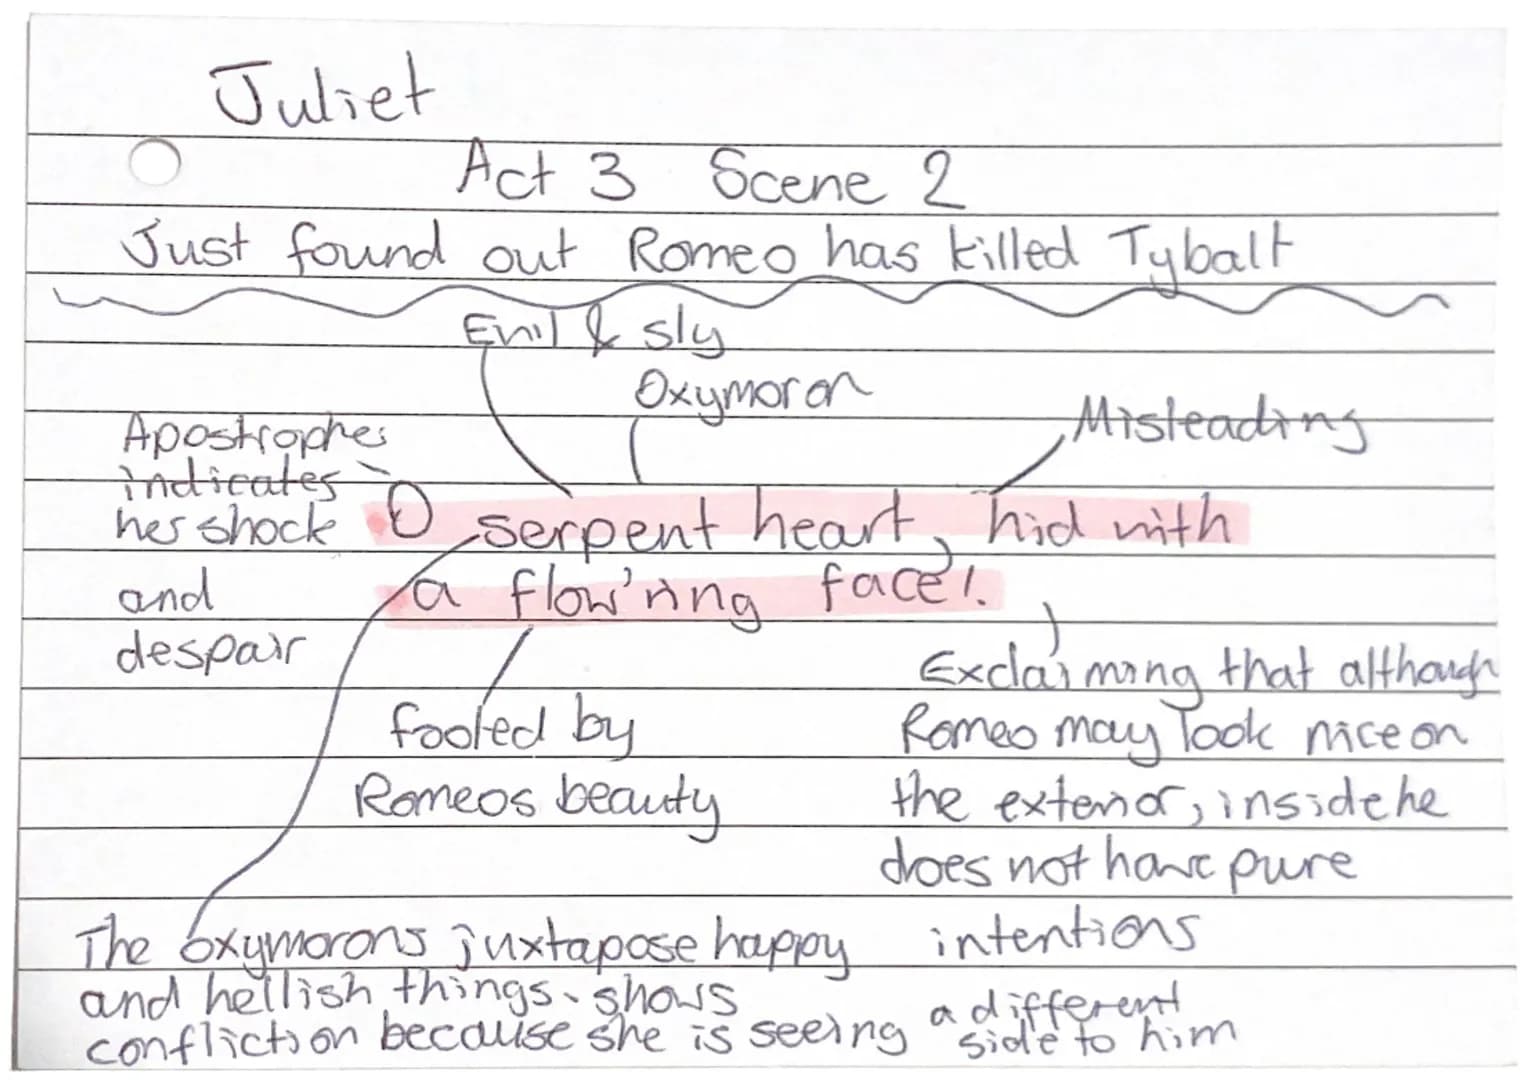 Juliet
Act 3 Scene 2
Just found out Romeo has killed Tybalt
Evil & sly
Oxymoron
Misleading
Apostrophe
indicates
her shock
and
despair
O serpent heart, hid with
a flow'ring face!.
fooled by
Romeos beauty
Exclaiming that although
Romeo may look nice on
the exterior, inside he
does not have pure
intentions
The oxymorons juxtapose happy
and hellish things. shows
confliction because she is seeing
a different
side to him